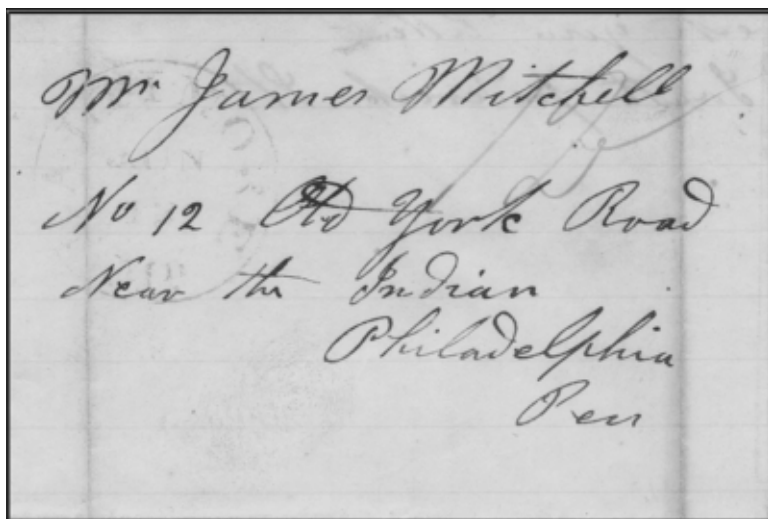 Mr James Mitchell
No 12 Old York Road
Near the Indian
Philadelphia
Pen